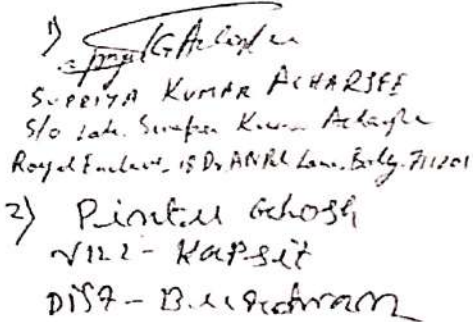 1)
SUPRIYA KUMAR ACHARJEE
S/o Late. Kumar
Royal Enclave, 15 Dr. Lane, Bally. 711201
2) Pintu Ghosh
VILL - Kapsit
DIST - Burdwan